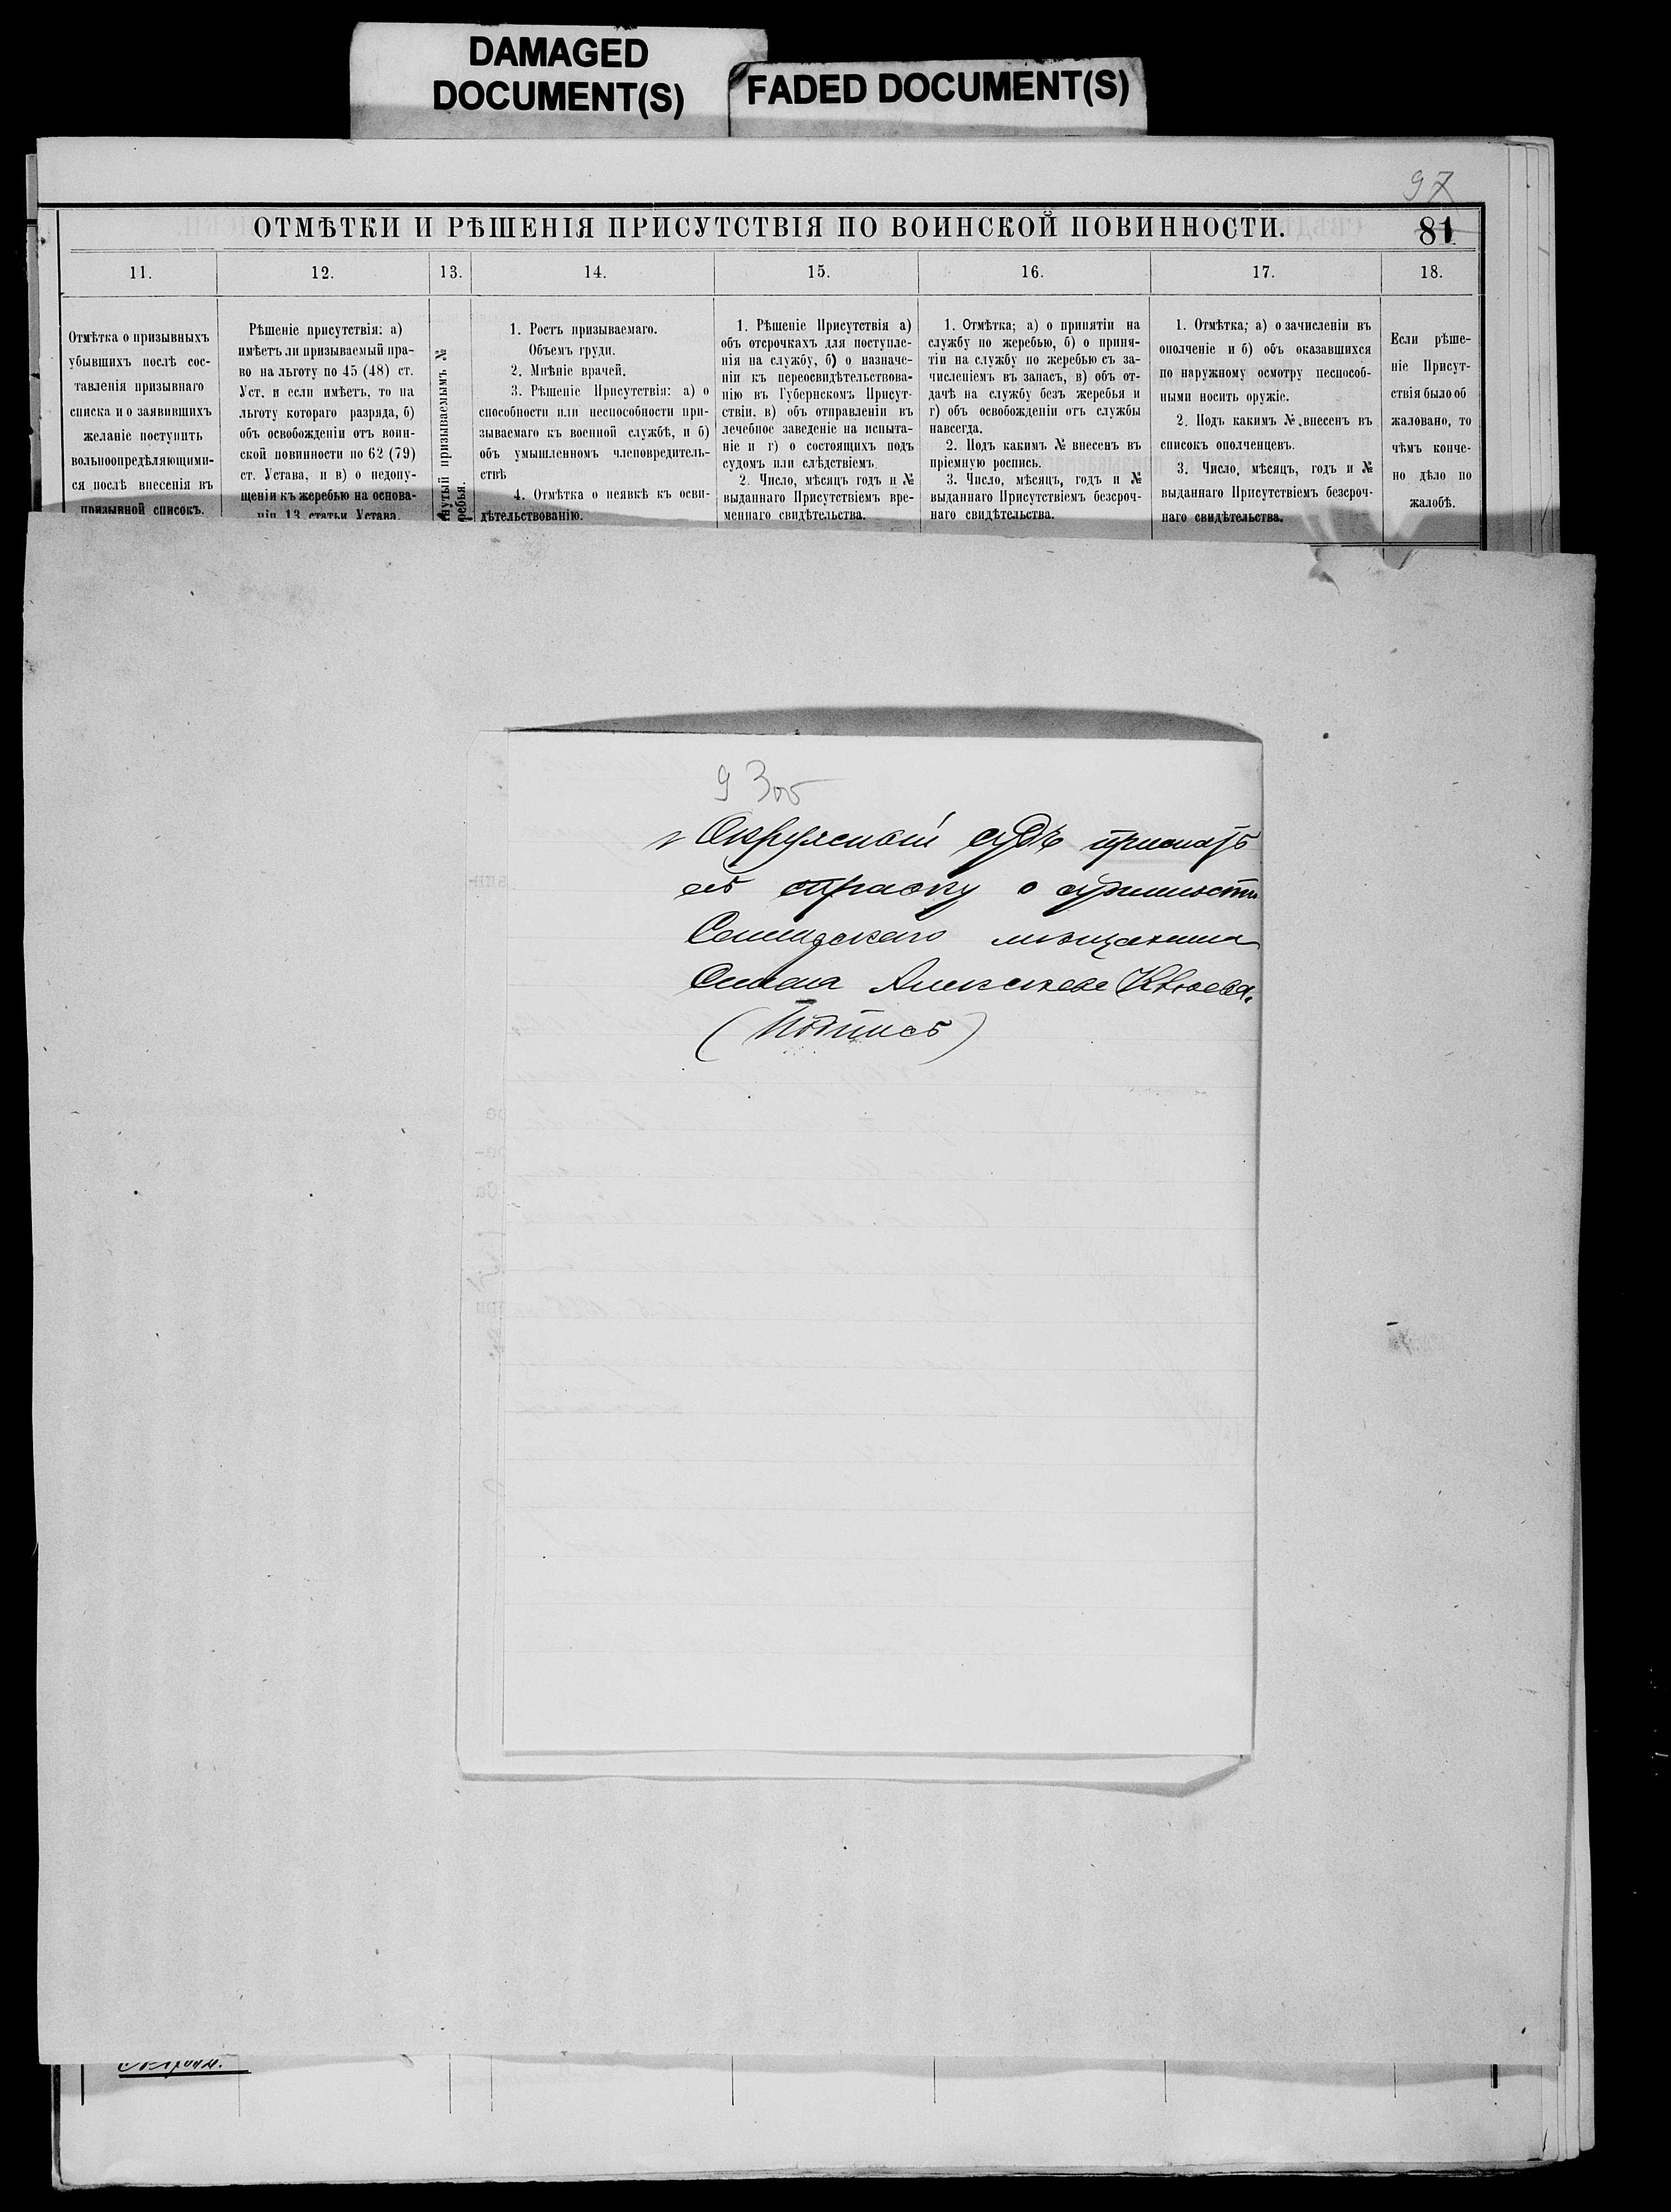 DAMAGED
DOCUMENT(S)
FADED DOCUMENT(S)
97
ОТМѢТКИ И РѢШЕНІЯ ПРИСУТСТВІЯ ПО ВОИНСКОЙ ПОВИННОСТИ.
81
11.
12.
13.
14.
15.
16.
17.
18.
Отмѣтка о призывныхъ
убывшихъ послѣ сос-
тавленія призывнаго
списка и о заявившихъ
желаніе поступить
вольноопредѣляющими-
ся послѣ внесенія въ
призывной списокъ.
Рѣшеніе присутствія: а)
имѣетъ ли призываемый пра-
во на льготу по 45 (48) ст.
Уст. и если имѣетъ, то на
льготу котораго разряда, б)
объ освобожденіи отъ воин-
ской повинности по 62 (79)
ст. Устава, и в) о недопу-
щеніи къ жеребью на основа-
ніи 13 статьи Устава.
нутый призываемымъ №
ребья.
1. Ростъ призываемаго.
Объемъ груди.
2. Мнѣніе врачей.
3. Рѣшеніе Присутствія: а) о
способности или неспособности при-
зываемаго къ военной службѣ, и б)
объ умышленномъ членовредитель-
ствѣ
4. Отмѣтка о неявкѣ къ осви-
дѣтельствованію.
1. Рѣшеніе Присутствія а)
объ отсрочкахъ для поступле-
нія на службу, б) о назначе-
ніи къ переосвидѣтельствова-
нію въ Губернскомъ Присут-
ствіи, в) объ отправленіи въ
лечебное заведеніе на испыта-
ніе и г) о состоящихъ подъ
судомъ или слѣдствіемъ
2. Число, мѣсяцъ годъ и №
выданнаго Присутствіемъ вре-
меннаго свидѣтельства.
1. Отмѣтка; а) о принятіи на
службу по жеребью, б) о приня-
тіи на службу по жеребью съ за-
численіемъ въ запасъ, в) объ от-
дачѣ на службу безъ жеребья и
г) объ освобожденіи отъ службы
навсегда.
2. Подъ какимъ № внесенъ въ
пріемную роспись.
3. Число, мѣсяцъ, годъ и №
выданнаго Присутствіемъ безсроч-
наго свидѣтельства.
1. Отмѣтка; а) о зачисленіи въ
ополченіе и б) объ оказавшихся
по наружному осмотру неспособ-
ными носить оружіе.
2. Подъ какимъ № внесенъ въ
списокъ ополченцевъ.
3. Число, мѣсяцъ, годъ и №
выданнаго Присутствіемъ безсроч-
наго свидѣтельства.
Если рѣше-
ніе Присут-
ствія было об
жаловано, то
чѣмъ конче-
но дѣло по
жалобѣ.
93об
Окружный судъ
справку о судимости
мѣщанина
Алексѣева
(Подпись)